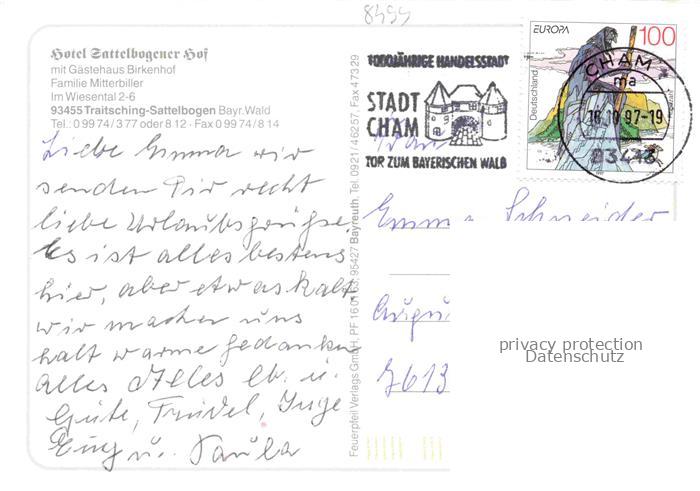 8499
Hotel Sattelbogener Hof
mit Gästehaus Birkenhof
Familie Mitterbiller
Im Wiesental 2-6
93455 Traitsching-Sattelbogen Bayr. Wald
Tel.: 0 99 74 / 3 77 oder 8 12 · Fax 0 99 74 / 8 14
Liebe Emma wir
senden Dir recht
liebe Urlaubsgrüße.
Es ist alles bestens
hier, aber etwas kalt
wir machen uns
halt warme gedanken
alles Alles lb. u.
Gute, Friedel, Inge
u. Paula
Feuerpfeil Verlags GmbH, PF 16 01 63, 95427 Bayreuth, Tel. 0921/46257, Fax 47329
1000JÄHRIGE HANDELSSTADT
STADT
CHAM
TOR ZUM BAYERISCHEN WALD
EUROPA
100
Deutschland
CHAM
ma
16.10.97-19
93413
Emma Schneider
7613
privacy protection
Datenschutz